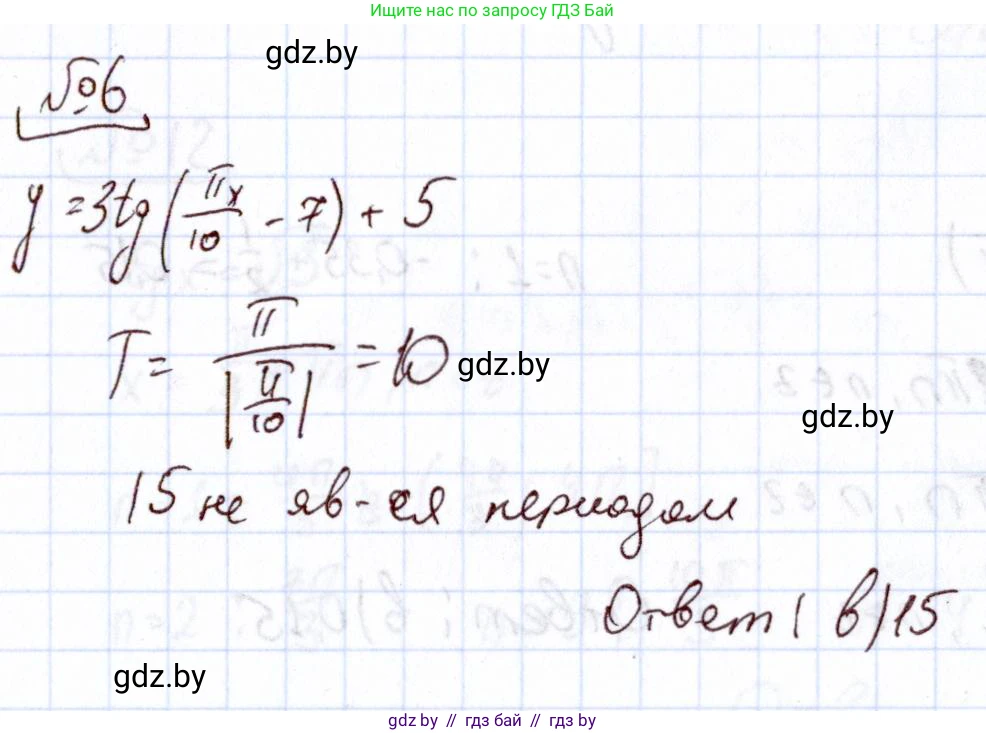 Ищите нас по запросу ГДЗ Бай
gdz.by
№6
y = 3tg(πx/10 - 7) + 5
T = π/|π/10| = 10
gdz.by
gdz.by
15 не яв-ся периодом
Ответ: в) 15
gdz.by
gdz.by // гдз бай // gdz.by